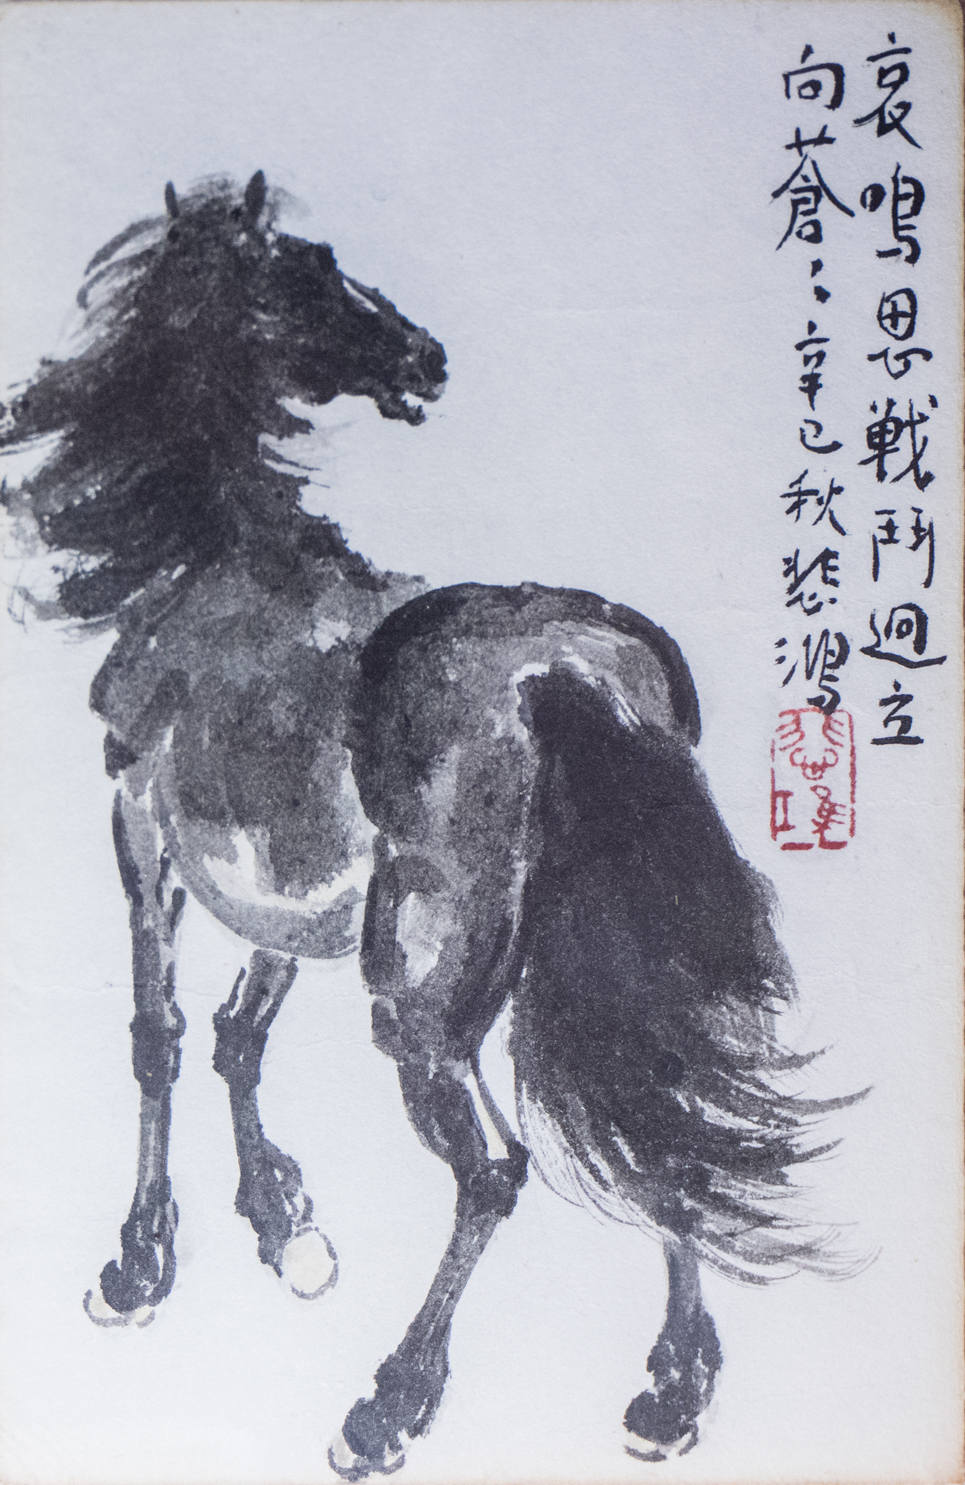 哀鳴思戰鬥迥立
向蒼〻辛巳秋悲鴻